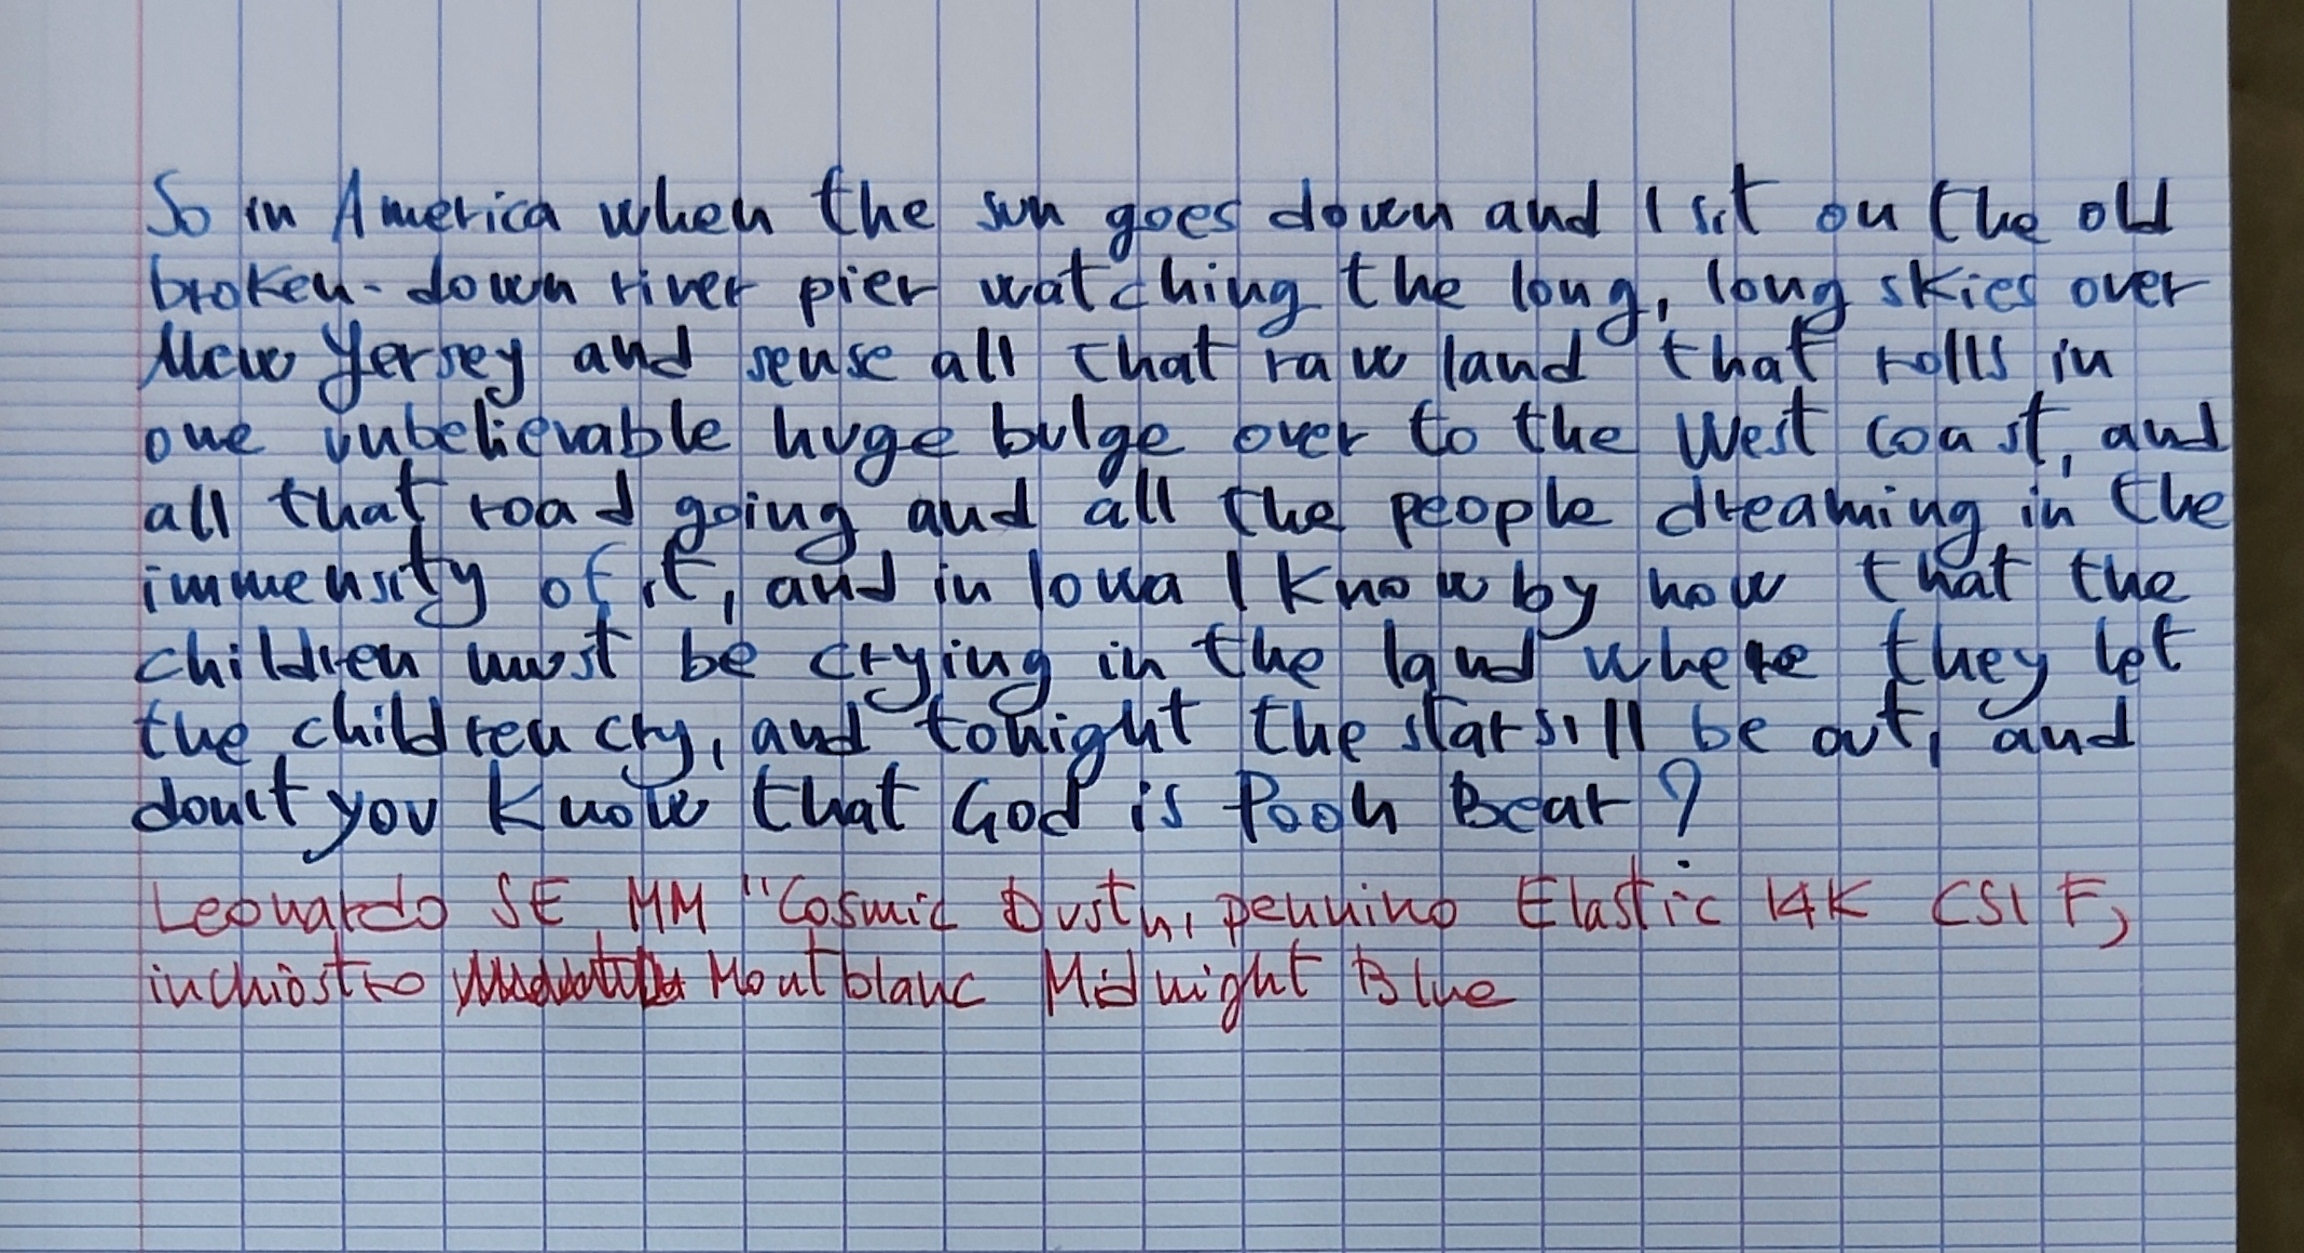 So in America when the sun goes down and I sit on the old
broken-down river pier watching the long, long skies over
New Yersey and sense all that raw land that rolls in
one unbelievable huge bulge over to the West Coast, and
all that road going and all the people dreaming in the
immensity of it, and in Iowa I know by now that the
children must be crying in the land where they let
the children cry, and tonight the stars'll be out, and
don't you know that God is Pooh Bear?
Leonardo SE MM "Cosmic Dust", pennino Elastic 14K CSI F,
inchiostro Montblanc Midnight Blue